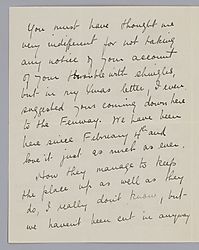 You must have thought me
very indifferent for not taking
any notice of your account
of your trouble with shingles,
but in my Xmas letter, I even
suggested your coming down here
to the Fenway. We have been
here since February 4th and
love it just as much as ever.
How they manage to keep
the place up as well as they
do, I really don't know, but
we haven't been cut in anyway